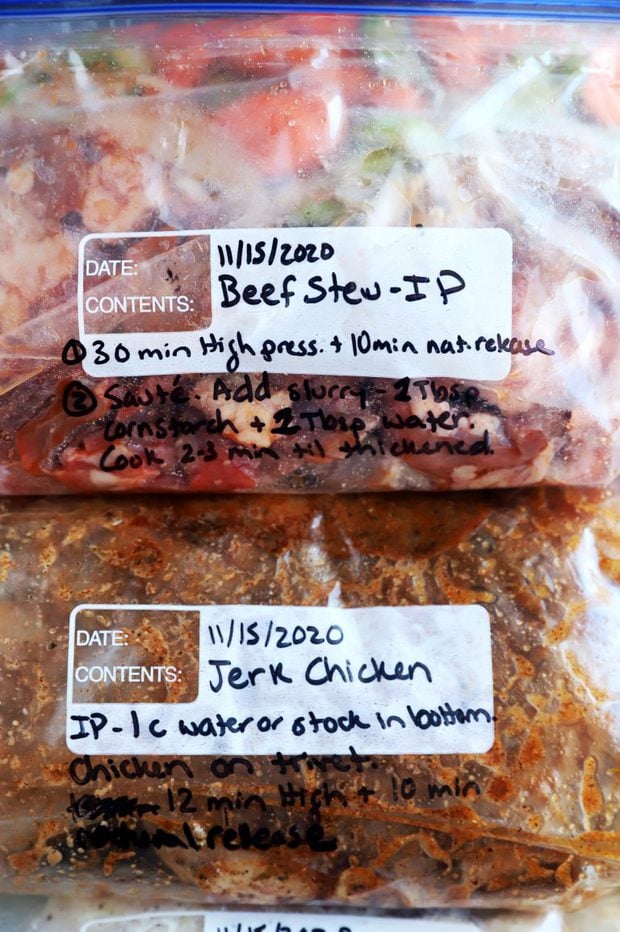 DATE: 11/15/2020
CONTENTS: Beef Stew - IP
① 30 min High press. + 10min nat. release
② Sauté. Add slurry - 1 Tbsp
cornstarch + 1 Tbsp water.
Cook 2-3 min til thickened.
DATE: 11/15/2020
CONTENTS: Jerk Chicken
IP - 1 c water or stock in bottom.
Chicken on trivet.
12 min High + 10 min
natural release
11/15/2020